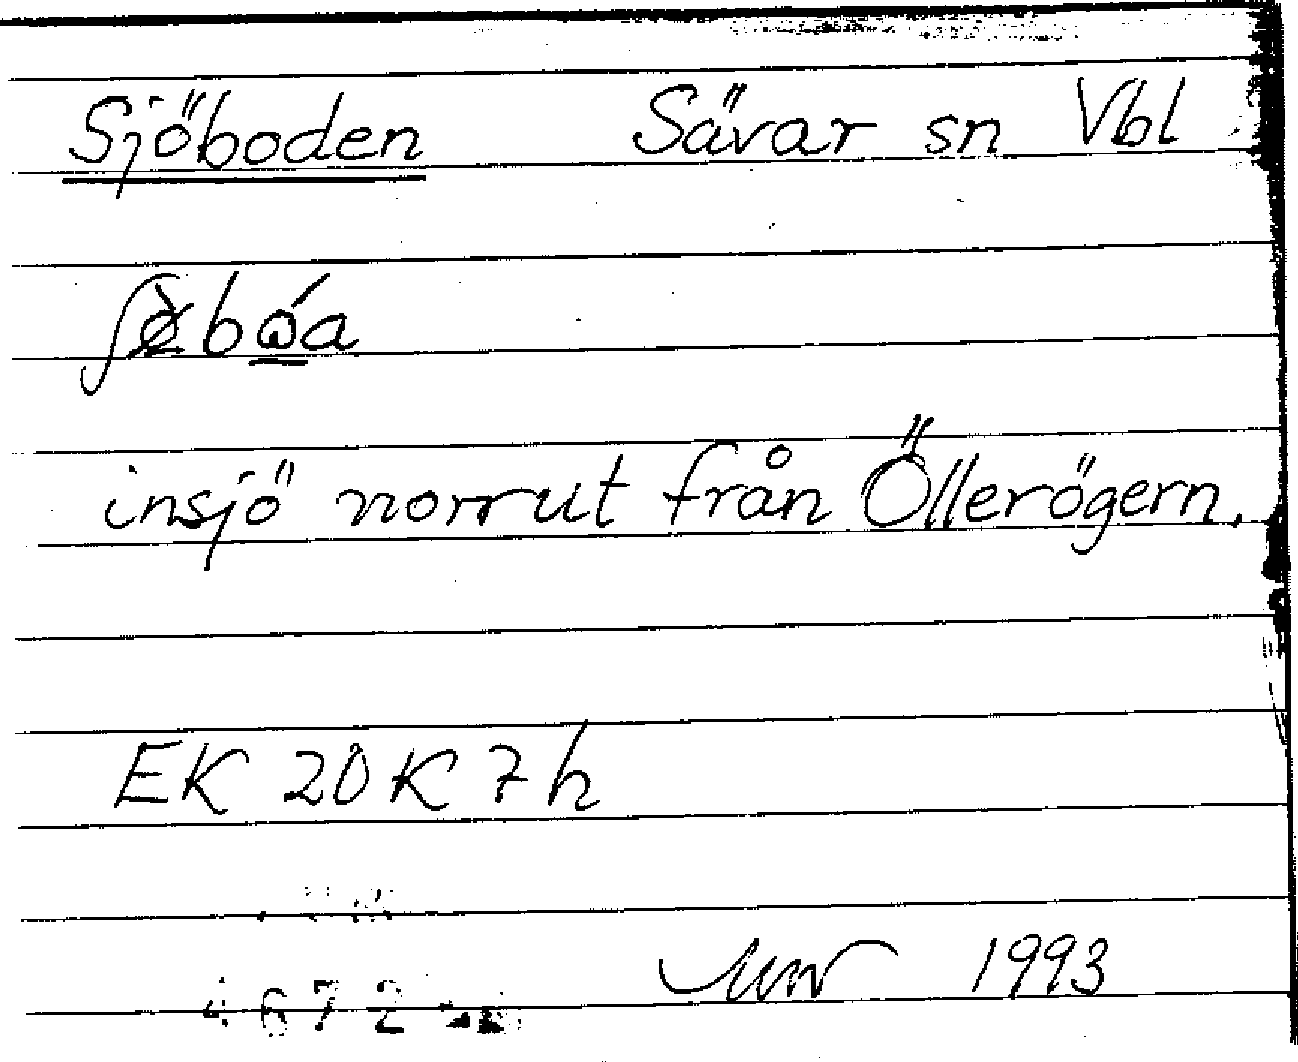 Sjöboden Sävar sn Vbl
insjö norrut från Öllerögern.
EK 20K 7h
1993
4672